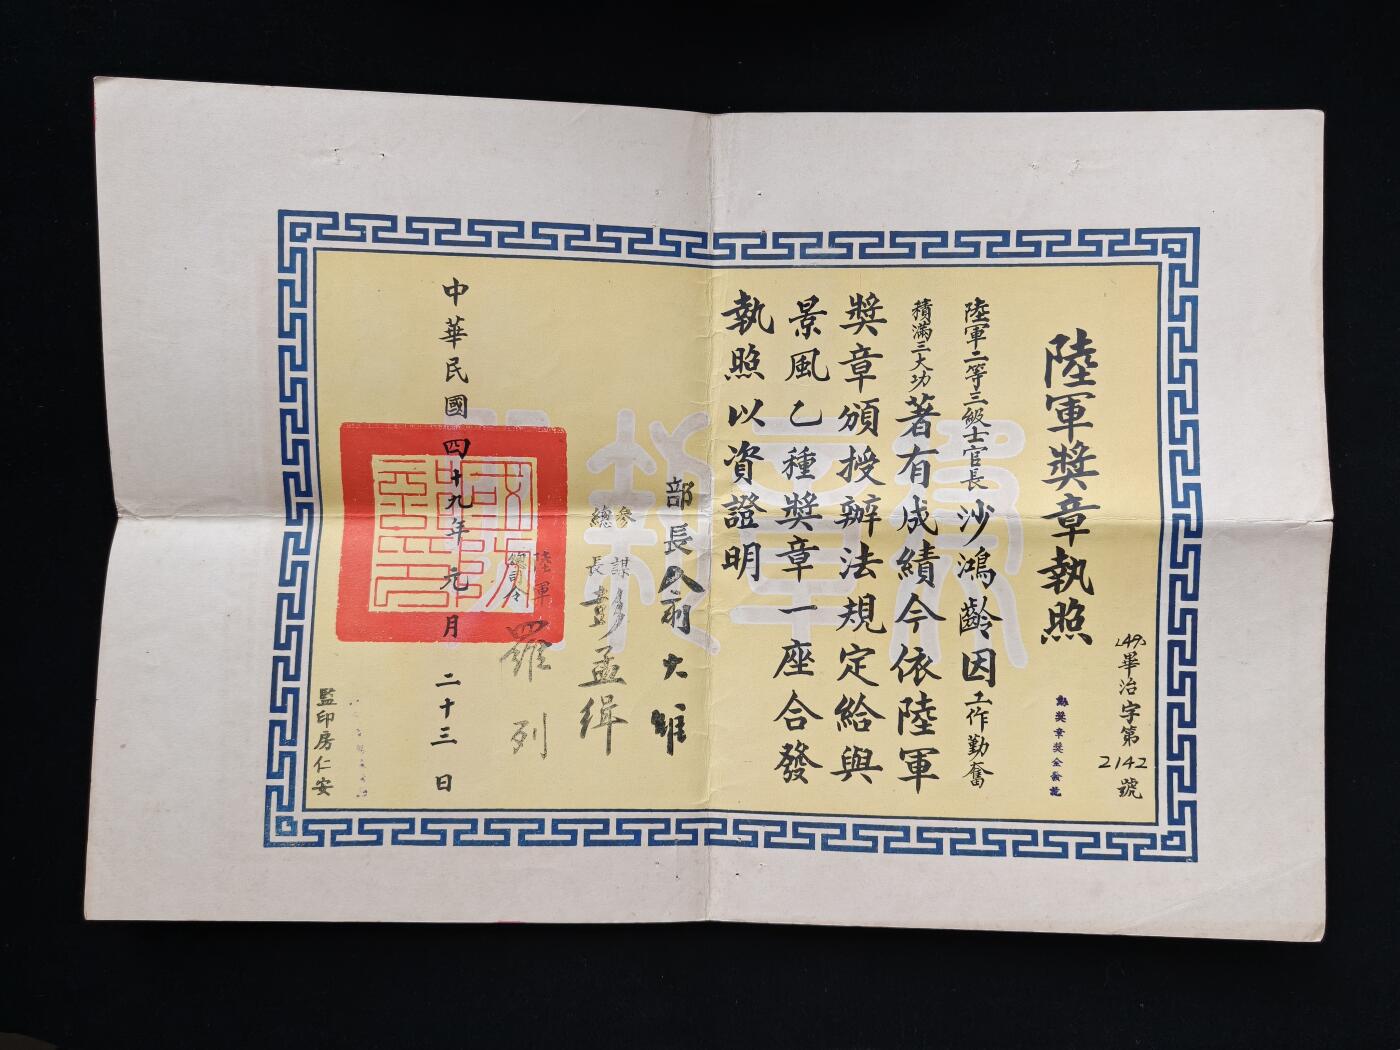 陸軍獎章執照
(49)畢治字第2142號
陸軍二等三級士官長沙鴻齡因工作勤奮
積滿三大功著有成績今依陸軍
獎章頒授辦法規定給與
景風乙種獎章一座合發
執照以資證明
部長俞大維
參謀總長彭孟緝
陸軍總司令羅列
中華民國四十九年元月二十三日
監印房仁安